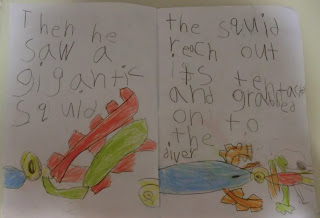 Then he
saw a
gigantic
squid
the squid
reach out
its tentacle
and grabbed
on to
the
diver